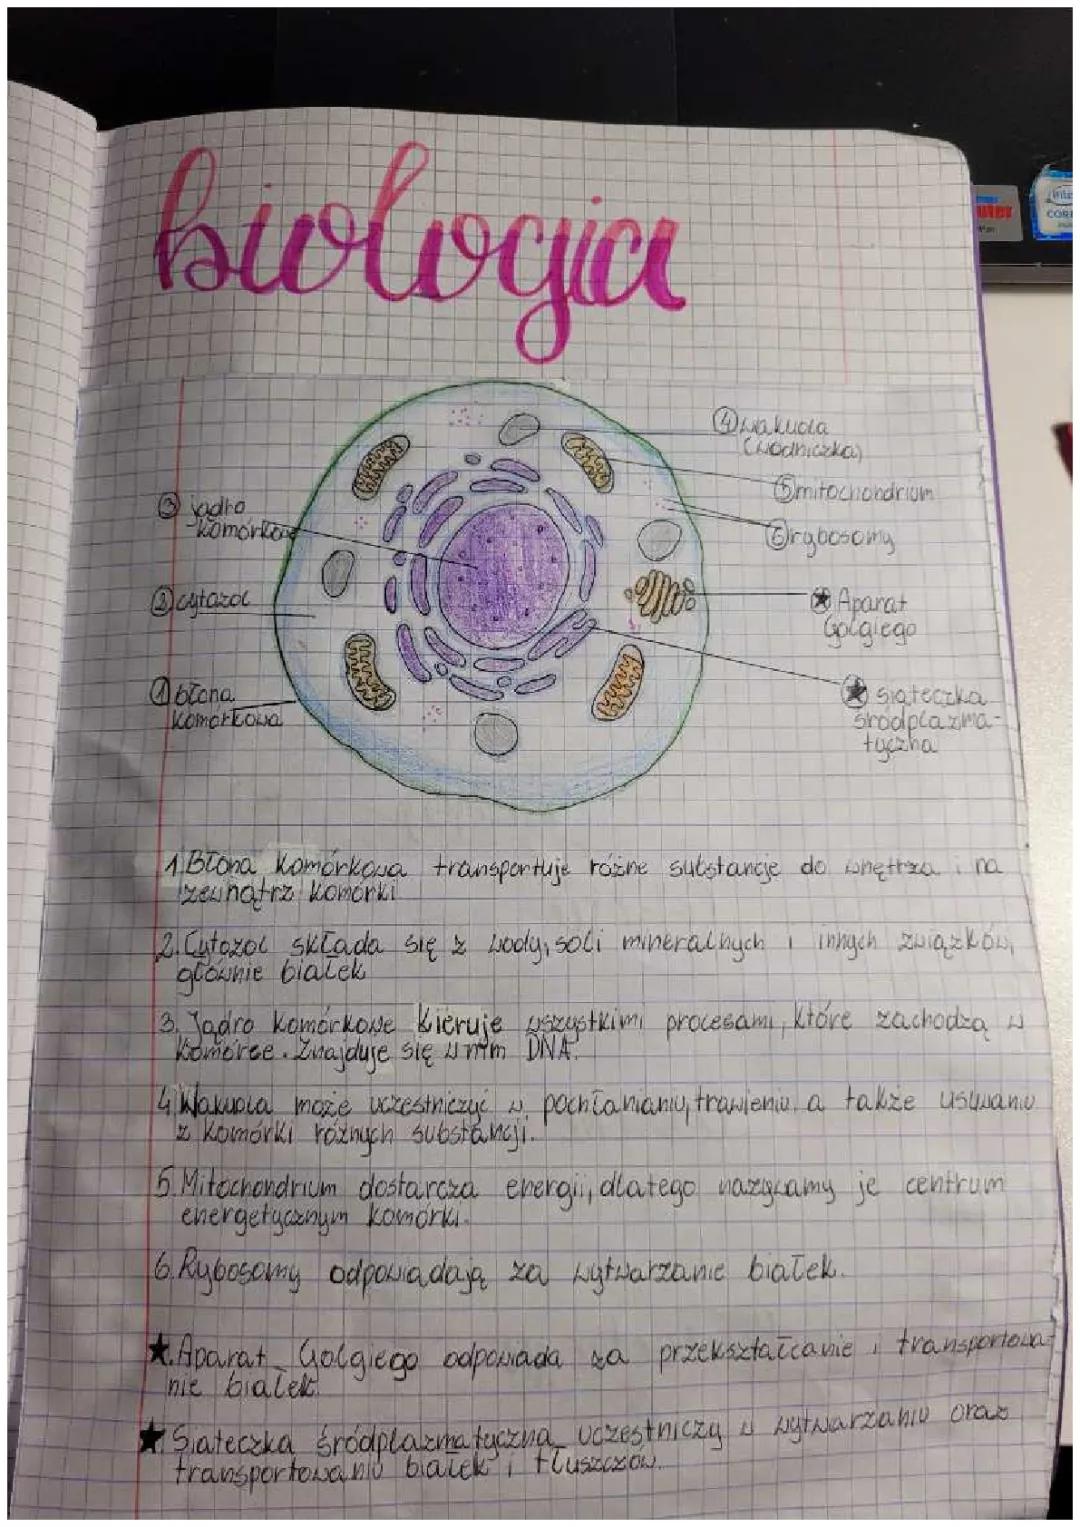 biologia
④ wakuola
(wodniczka)
⑤ mitochondrium
③ jądro
komórkowe
⑥ rybosomy
② cytozol
★ Aparat
Golgiego
① błona
komórkowa
★ siateczka
śródplazma-
tyczna
1. Błona komórkowa transportuje różne substancje do wnętrza i na
zewnątrz komórki
2. Cytozol składa się z wody, soli mineralnych i innych związków,
głównie białek
3. Jądro komórkowe kieruje wszystkimi procesami, które zachodzą w
komórce. Znajduje się w nim DNA.
4. Wakuola może uczestniczyć w pochłanianiu, trawieniu a także usuwaniu
z komórki różnych substancji.
5. Mitochondrium dostarcza energii, dlatego nazywamy je centrum
energetycznym komórki.
6. Rybosomy odpowiadają za wytwarzanie białek.
★. Aparat Golgiego odpowiada za przekształcanie i transportowa-
nie białek
★ Siateczka śródplazmatyczna uczestniczy w wytwarzaniu oraz
transportowaniu białek i tłuszczów.